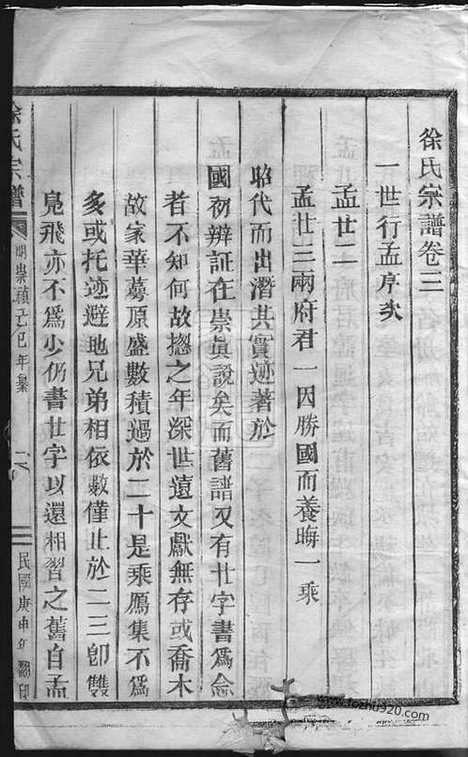 徐氏宗譜卷三
一世行孟序夾
孟廿二
孟廿三兩府君一因勝國而養晦一乘
昭代而出潛其實迹著於
國初辨証在崇眞說矣而舊譜又有廿字書爲念
者不知何故揔之年深世遠文獻無存或喬木
故家華蕚原盛數積過於二十是乘鴈集不爲
多或托迹避地兄弟相依數僅止於二三卽雙
鳧飛亦不爲少仍書廿字以還相習之舊自孟
徐氏宗譜
明崇禎己巳年纂
民國庚申年
www.fozhu920.com